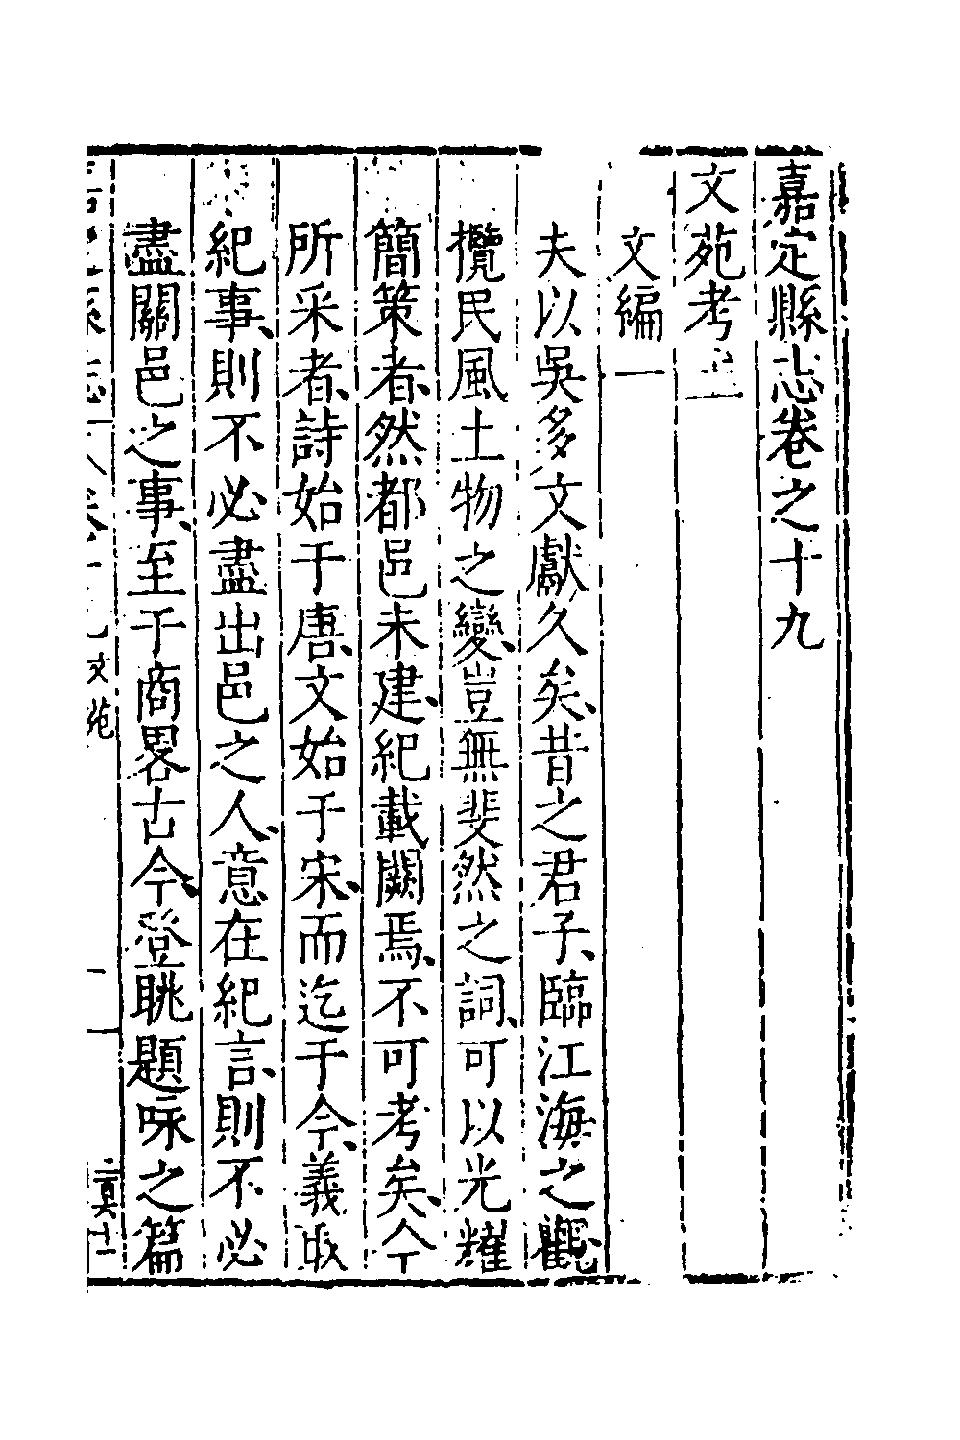 嘉定縣志卷之十九
文苑考
文編一
夫以吳多文獻久矣、昔之君子、臨江海之觀
攬民風土物之變、豈無斐然之詞、可以光耀
簡策者、然都邑未建、紀載闕焉、不可考矣、今
所采者、詩始于唐、文始于宋、而迄于今、義取
紀事、則不必盡出邑之人、意在紀言、則不必
盡關邑之事、至于商畧古今、登眺題咏之篇
文苑